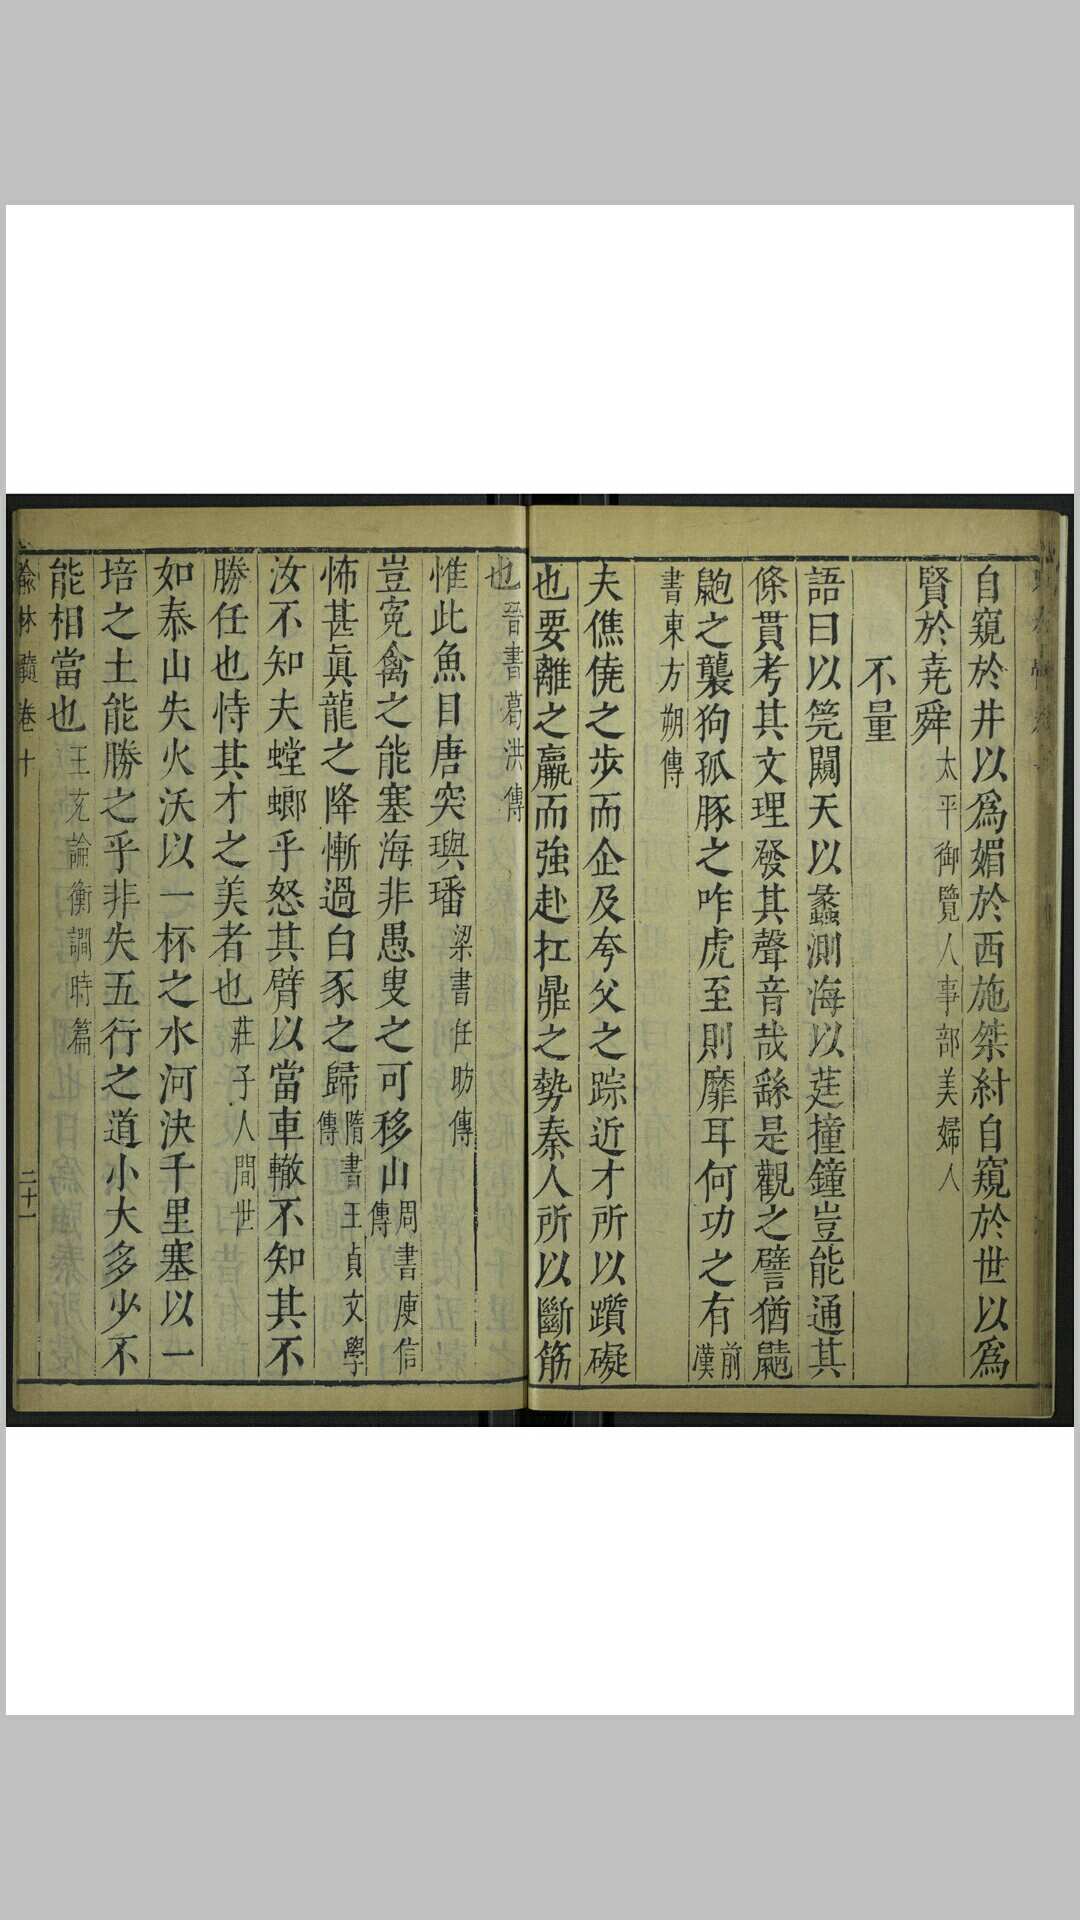 自窺於井以為媚於西施桀紂自窺於世以為
賢於堯舜太平御覽人事部美婦人
不量
語曰以筦闚天以蠡測海以莛撞鐘豈能通其
條貫考其文理發其聲音哉繇是觀之譬猶鼱
鼩之襲狗孤豚之咋虎至則靡耳何功之有前漢
書東方朔傳
夫僬僥之步而企及夸父之踪近才所以躓礙
也要離之羸而強赴扛鼎之勢秦人所以斷筋
也晉書葛洪傳
惟此魚目唐突璵璠梁書任昉傳
豈寃禽之能塞海非愚叟之可移山周書庾信傳
怖甚眞龍之降慚過白豕之歸隋書王貞文學傳
汝不知夫螳螂乎怒其臂以當車轍不知其不
勝任也恃其才之美者也莊子人間世
如泰山失火沃以一杯之水河決千里塞以一
培之土能勝之乎非失五行之道小大多少不
能相當也王充論衡譋時篇
喻林髓卷十 二十一